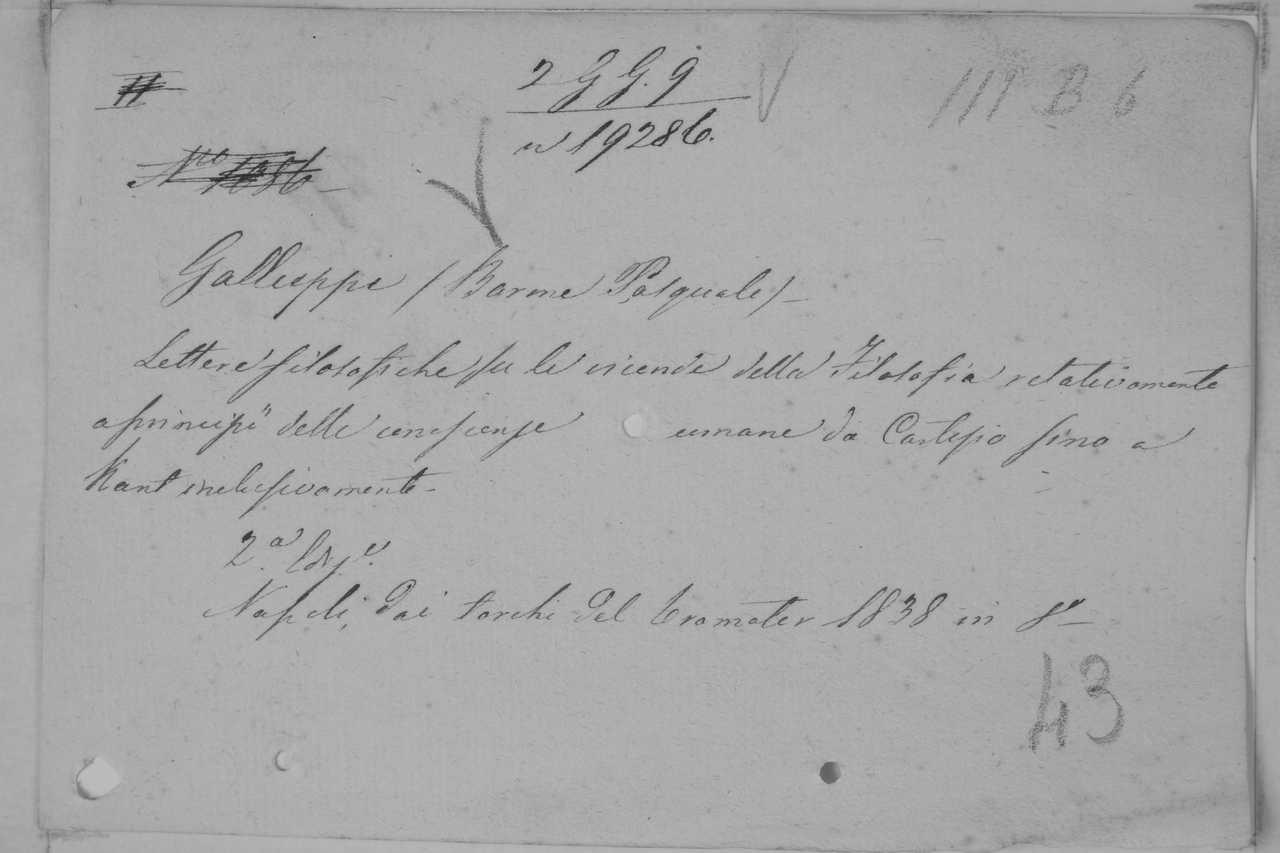 2 G G. 9
III B 6
n 19286.
Nro 1686
Galluppi (Barone Pasquale)
Lettere filosofiche su le vicende della Filosofia relativamente
a principii delle conoscenze umane da Cartesio sino a
Kant inclusivamente
2.a Edz.e
Napoli, dai torchi del Tramater 1838 in 8°
43